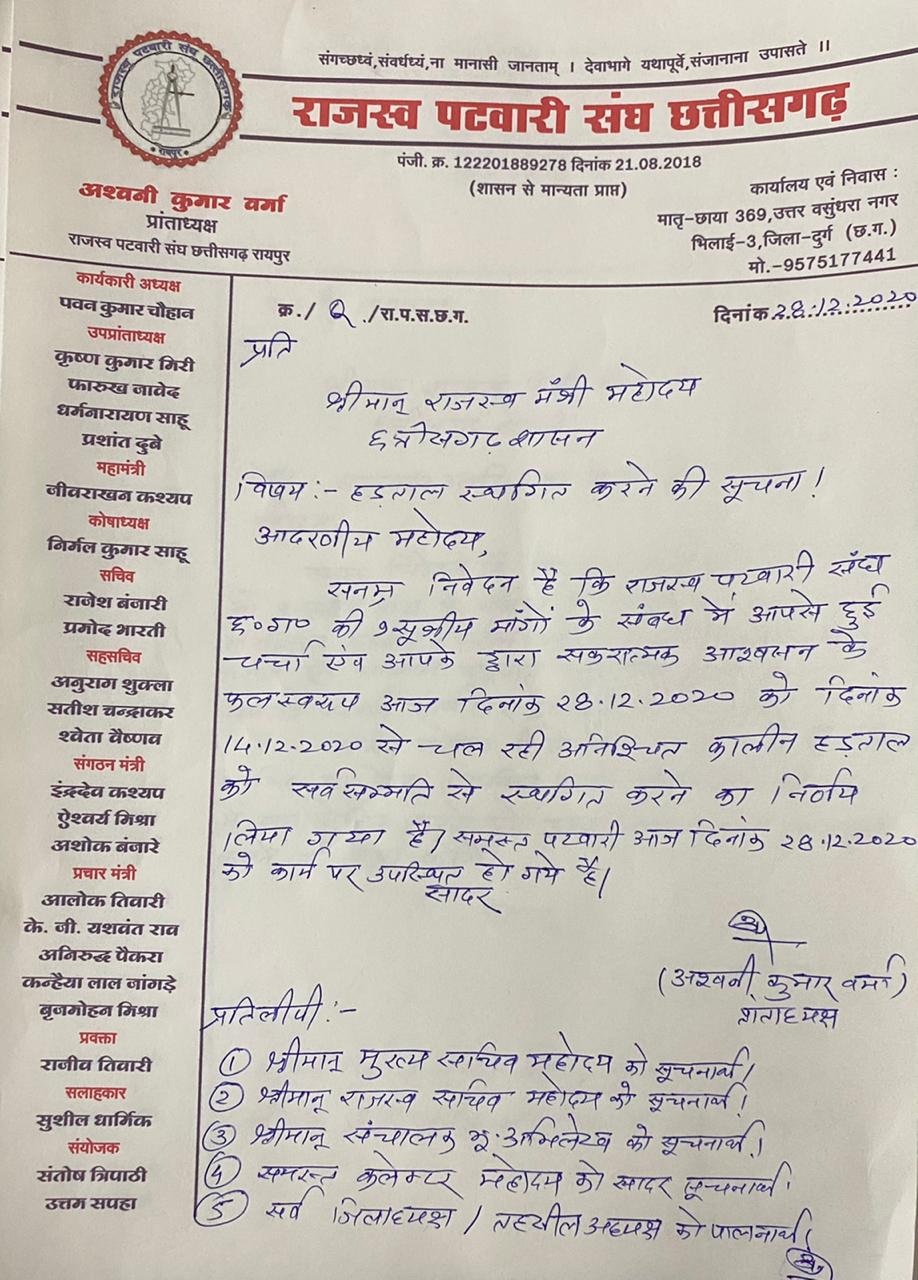 संगच्छध्वं,संवर्धध्यं,ना मानासी जानताम् । देवाभागे यथापूर्वे,संजानाना उपासते ।।
राजस्व पटवारी संघ छत्तीसगढ़
राजस्व पटवारी संघ छत्तीसगढ़
रायपुर
पंजी. क्र. 122201889278 दिनांक 21.08.2018
(शासन से मान्यता प्राप्त)
अश्वनी कुमार वर्मा
प्रांताध्यक्ष
राजस्व पटवारी संघ छत्तीसगढ़ रायपुर
कार्यालय एवं निवास :
मातृ-छाया 369,उत्तर वसुंधरा नगर
भिलाई-3,जिला-दुर्ग (छ.ग.)
मो.-9575177441
कार्यकारी अध्यक्ष
पवन कुमार चौहान
उपप्रांताध्यक्ष
कृष्ण कुमार गिरी
फारुख जावेद
धर्मनारायण साहू
प्रशांत दुबे
महामंत्री
जीवराखन कश्यप
कोषाध्यक्ष
निर्मल कुमार साहू
सचिव
राजेश बंजारी
प्रमोद भारती
सहसचिव
अनुराग शुक्ला
सतीश चन्द्राकर
श्वेता वैष्णव
संगठन मंत्री
इंद्रदेव कश्यप
ऐश्वर्य मिश्रा
अशोक बंजारे
प्रचार मंत्री
आलोक तिवारी
के. जी. यशवंत राव
अनिरुद्ध पैकरा
कन्हैया लाल जांगड़े
बृजमोहन मिश्रा
प्रवक्ता
राजीव तिवारी
सलाहकार
सुशील धार्मिक
संयोजक
संतोष त्रिपाठी
उत्तम सपहा
क्र./ /रा.प.स.छ.ग.
दिनांक 28.12.2020
प्रति
श्रीमान् राजस्व मंत्री महोदय
छत्तीसगढ़ शासन
विषय :- हड़ताल स्थगित करने की सूचना !
आदरणीय महोदय,
सनम्र निवेदन है कि राजस्व पटवारी संघ
छ०ग० की 9 सूत्रीय मांगों के संबंध में आपसे हुई
चर्चा एंव आपके द्वारा सकरात्मक आश्वासन के
फलस्वरूप आज दिनांक 28.12.2020 को दिनांक
14.12.2020 से चल रही अनिश्चित कालीन हड़ताल
को सर्वसम्मति से स्थगित करने का निर्णय
लिया गया है। समस्त पटवारी आज दिनांक 28.12.2020
को कार्य पर उपस्थित हो गये है।
सादर
(अश्वनी कुमार वर्मा)
प्रतिलीपी :-
① श्रीमान् मुख्य सचिव महोदय को सूचनार्थ।
② श्रीमान् राजस्व सचिव महोदय को सूचनार्थ।
③ श्रीमान् संचालक भू-अभिलेख को सूचनार्थ।
④ समस्त कलेक्टर महोदय को सादर सूचनार्थ।
⑤ सर्व जिलाध्यक्ष / तहसील अध्यक्ष को पालनार्थ।